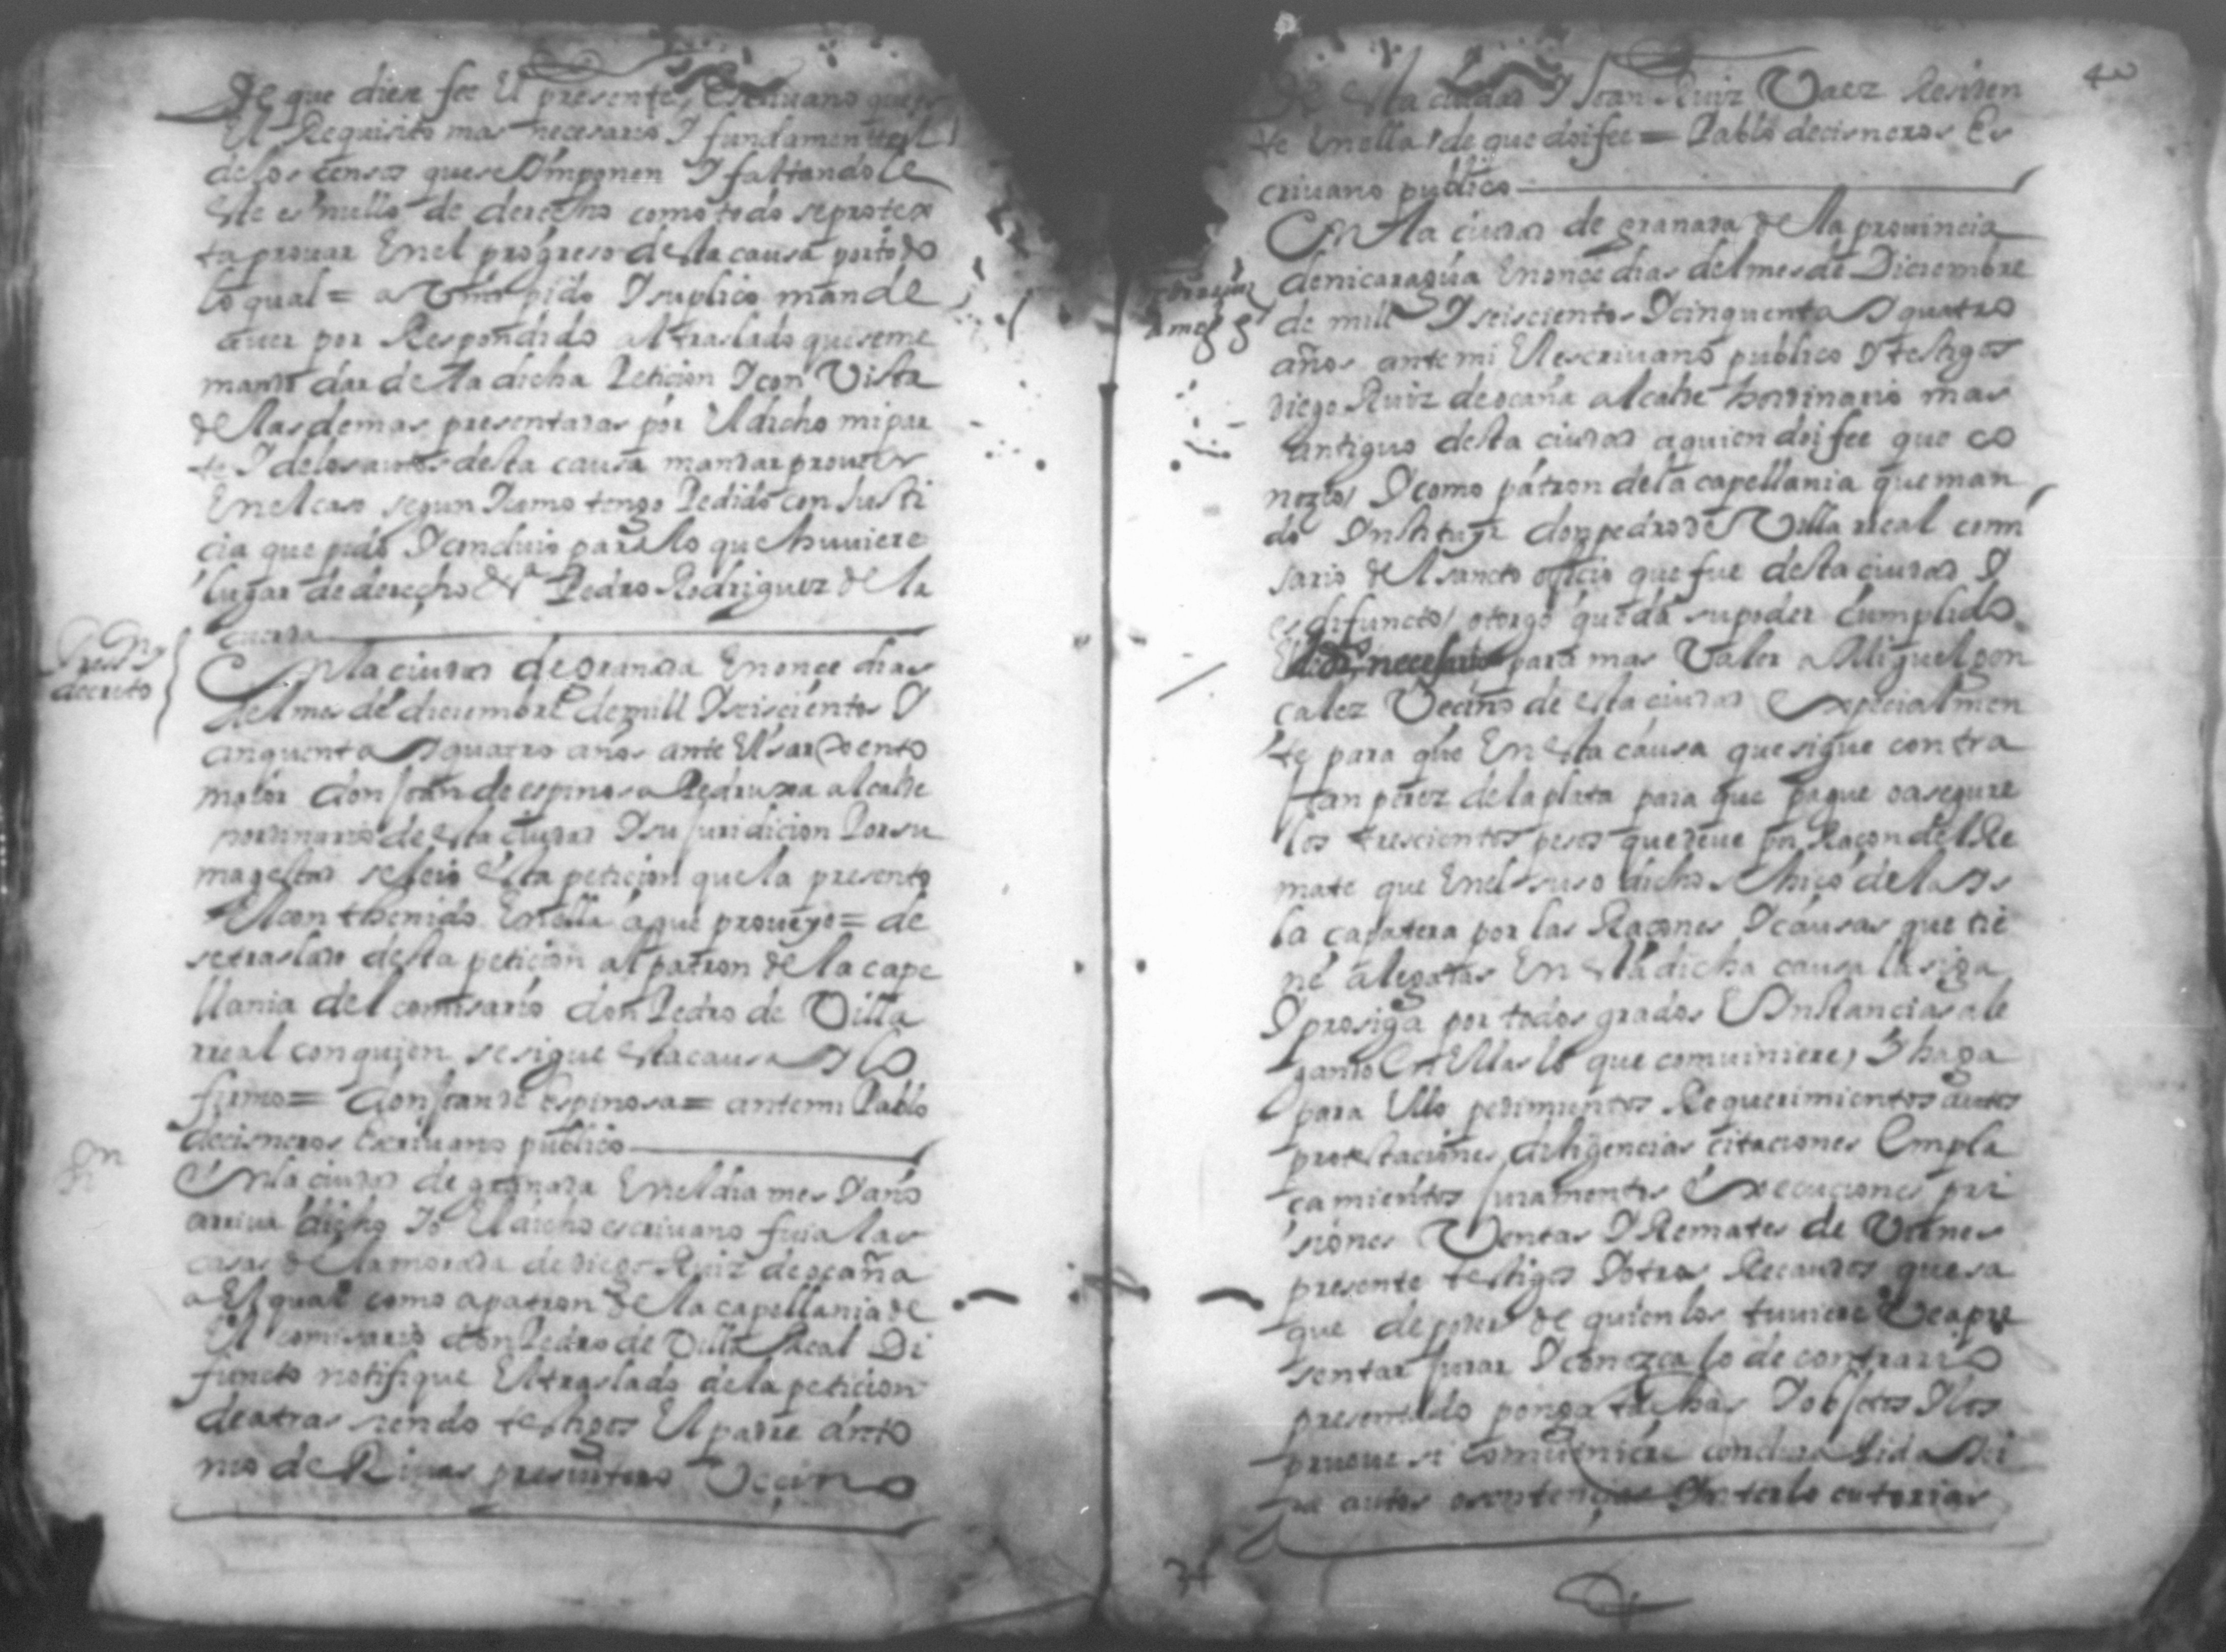 de que diese fee El presente Escriuano que es
El Requisito mas necesario Y fundamental
de los censos que se Ymponen Y faltandole
este es nullo de derecho como todo se protex
ta prouar En el progreso desta causa por todo
lo qual = a Vm pido Y suplico mande
auer por Respondido al traslado que se me
mando dar de esta dicha Peticion Y con Vista
de las demas presentadas por El dicho mi par
te Y de los autos desta causa mandar proueer
En el caso segun Y como tengo Pedido con Justi
cia que pido Y concluio para lo que huuiere
lugar de derecho Pedro Rodriguez de la
cueua
decreto
En la ciudad de Granada En once dias
del mes de diciembre de mill Y seiscientos Y
cinquenta Y quatro años ante El sarxento
maior don Joan de espinosa Pedruxa alcalde
hordinario de esta ciudad Y su Juridicion Por su
magestad se leio esta peticion que la presento
El conthenido En ella a que proueyo = de
se traslado desta peticion al patron de la cape
llania del comisario don Pedro de Villa
rreal con quien se sigue esta causa Y lo
firmo = don Joan de Espinosa = ante mi Pablo
decisneros Escriuano publico
En la ciudad de granada En el dia mes Y año
arriua dicho Yo El dicho escriuano fui a las
casas de la morada de diego Ruiz de ocaña
a El qual como a patron de la capellania de
El comisario don Pedro de Villa Real Di
functo notifique El traslado de la peticion
de atras siendo testigos El padre anto
nio de Riuas presuitero Vecino
43
de esta ciudad Y Joan Ruiz Vaez Residen
te En ella de que doi fee = Pablo decisneros Es
criuano publico
En la ciudad de granada de la prouincia
de nicaragua En once dias del mes de Diciembre
de mill Y seiscientos Y cinquenta Y quatro
años ante mi El escriuano publico Y testigos
diego Ruiz de ocaña alcalde hordinario mas
antiguo desta ciudad a quien doi fee que co
nozco Y como patron de la capellania que man
do Ynstituyr don pedro de Villa rreal comi
sario del sancto oficio que fue desta ciudad Y
es difuncto otorgo que da su poder cumplido
para mas Valer a Miguel gon
calez Vecino de esta ciudad Expecialmen
te para que En esta causa que sigue contra
Joan perez de la plata para que pague o asegure
los trescientos pesos que deue por Raçon del Re
mate que En el suso dicho se hiço de la Ys
la capatera por las Raçones Y causas que tie
ne alegadas En esta dicha causa la siga
Y prosiga por todos grados E Ynstancias ale
gando En Ellas lo que comuiniere Y haga
para Ello pedimientos Requerimientos autos
protestaciones diligencias citaciones Empla
camientos Juramentos Execuciones pri
siones Ventas Y Remates de Vienes
presente testigos Y otros Recaudos que sa
que de poder de quien los tuuiere Vea pre
sentar Jurar Y conozca lo de contrario
presentado ponga tachas Y objetos Y los
prueue si comuiniere concluia Pida Y oi
ga autos o sentencias Ynterlocutorias